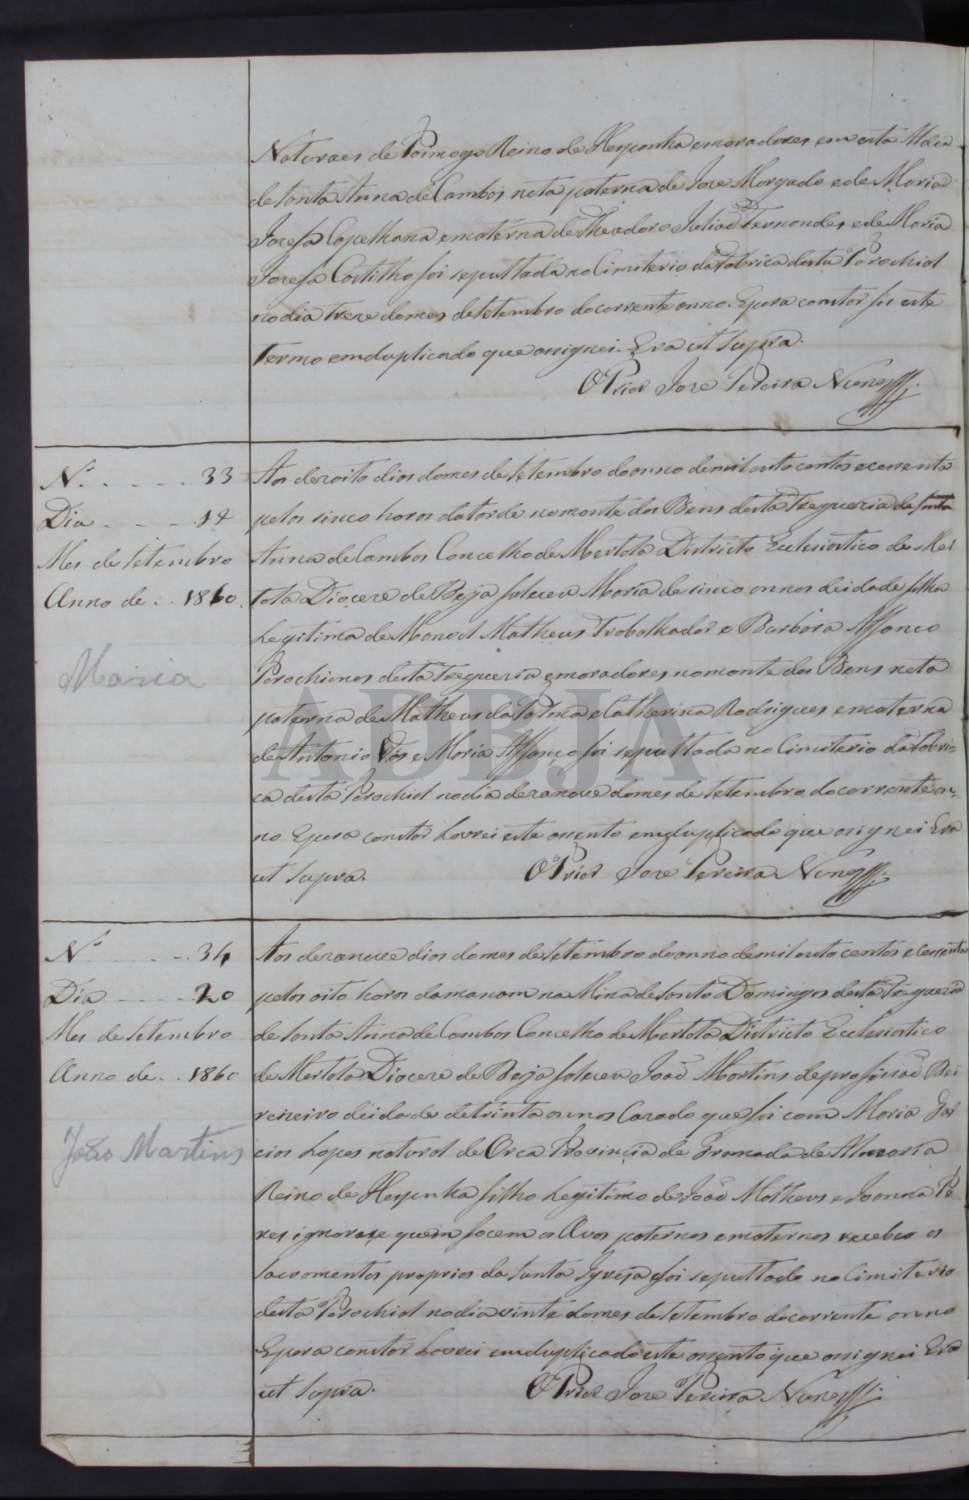 Naturaes de Reino de Hespanha e moradores em esta Aldea
de Santa Anna de Cambas neta paterna de Joze Morgado e de Maria
Jozefa Capelhana e materna de Theodoro Julião Fernandes e de Maria
Jozefa Castilho foi sepultada no Cimiterio da Fabrica desta Parochial
no dia treze do mes de Setembro do corrente anno. E para constar fiz este
Termo em duplicado que assignei. Era ut supra.
O Prior Joze Pereira Nunes
Nº 33
Dia 18
Mes de Setembro
Anno de 1860.
Maria
Aos dezoito dias do mes de Setembro do anno de mil outo centos e cecenta
pelas sinco horas da tarde no monte dos Bens desta Freguezia de Santa
Anna de Cambas Concelho de Mertola Districto Ecclesiastico de Mer
tola Diocese de Beja faleceu Maria de sinco annos de idade filha
Legitima de Manoel Matheus Trabalhador e Barbora Affonco
Parochianos desta Freguezia e moradores no monte dos Bens neta
paterna de Matheus da Palma e Catherina Rodrigues e materna
de Antonio e Maria Affonço foi sepultada no Cimiterio da Fabri-
ca desta Parochial no dia dezanove do mes de Setembro do corrente an-
no E para constar Lavrei este assento em duplicado que assignei Era
ut supra. O Prior Joze Pereira Nunes
Nº 34
Dia 20
Mes de Setembro
Anno de 1860
João Martins
Aos dezanove dias do mes de Setembro do anno de mil outo centos e cecenta
pelas oito horas da manam na Mina de Santo Domingos desta Freguezia
de Santa Anna de Cambas Concelho de Mertola Districto Ecclesiastico
de Mertola Diocese de Beja faleceu João Martins de profissão
de idade de trinta annos Cazado que foi com Maria Gar
cias Lopes natural de Orca Provincia de Granada de
Reino de Hespanha filho Legitimo de João Matheus e Joanna Pe
res ignorase quem focem os Avos paternos e maternos recebeo os
Sacramentos proprios da Santa Igreja foi sepultado no Cimiterio
desta Parochial no dia vinte do mes de Setembro do corrente anno
E para constar Lavrei em duplicado este assento que assignei Era
ut supra. O Prior Joze Pereira Nunes
ADBJA